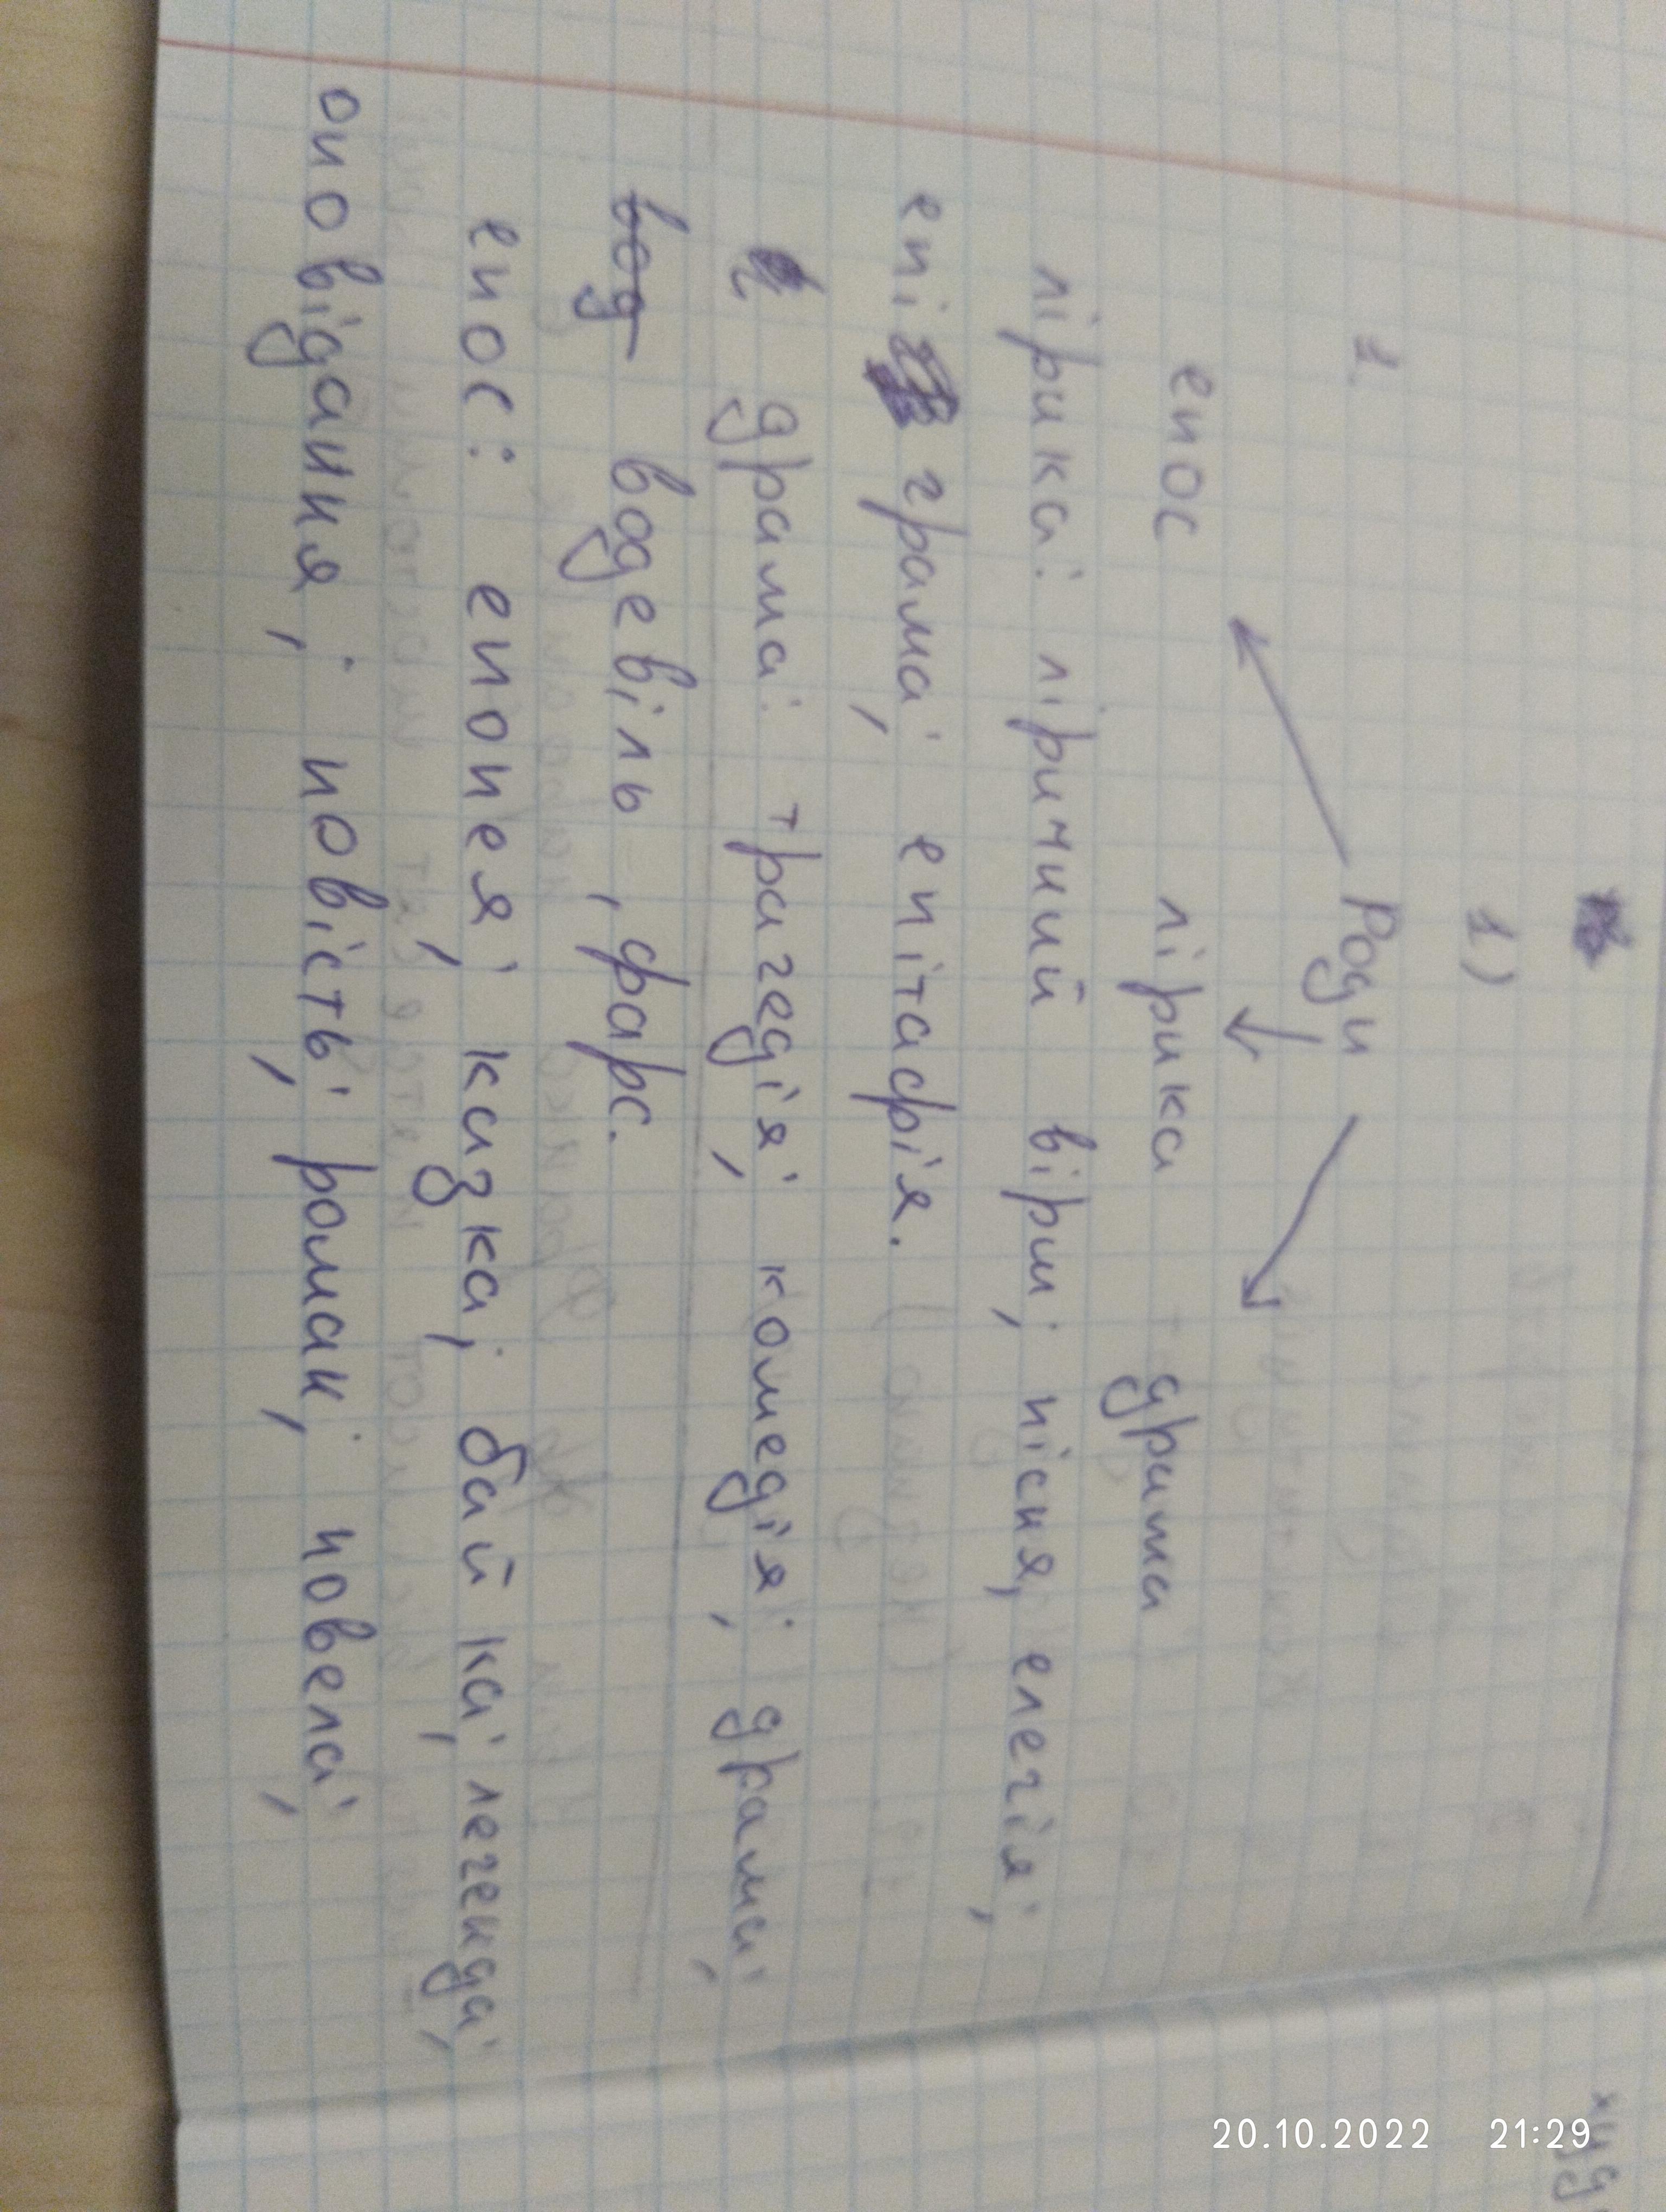 1)
1. Роди
епос лірика драма
лірика: ліричний вірш; пісня; елегія;
епіграма; епітафія.
драма: трагедія; комедія; драма;
вод водевіль, фарс.
епос: епопея; казка; байка; легенда;
оповідання; повість; роман; новела;
20.10.2022 21:29